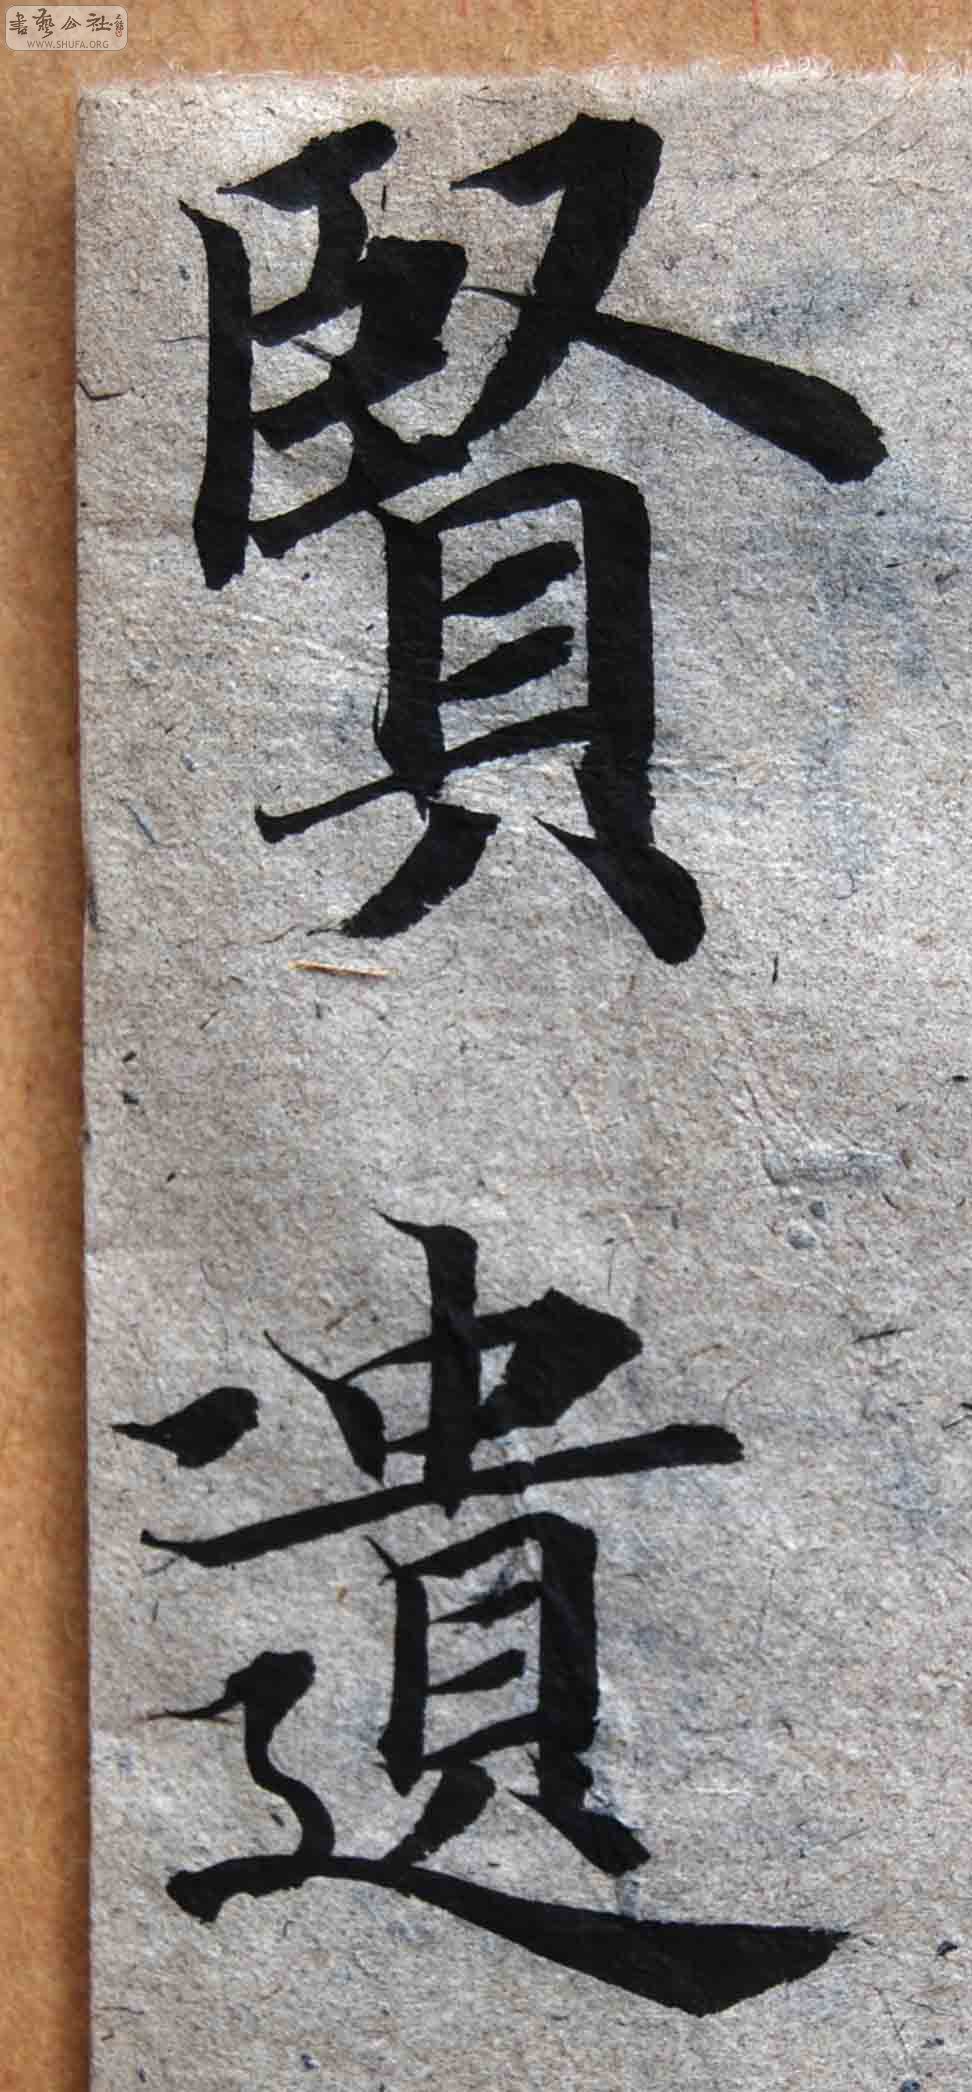 書藝公社
WWW.SHUFA.ORG
賢遺